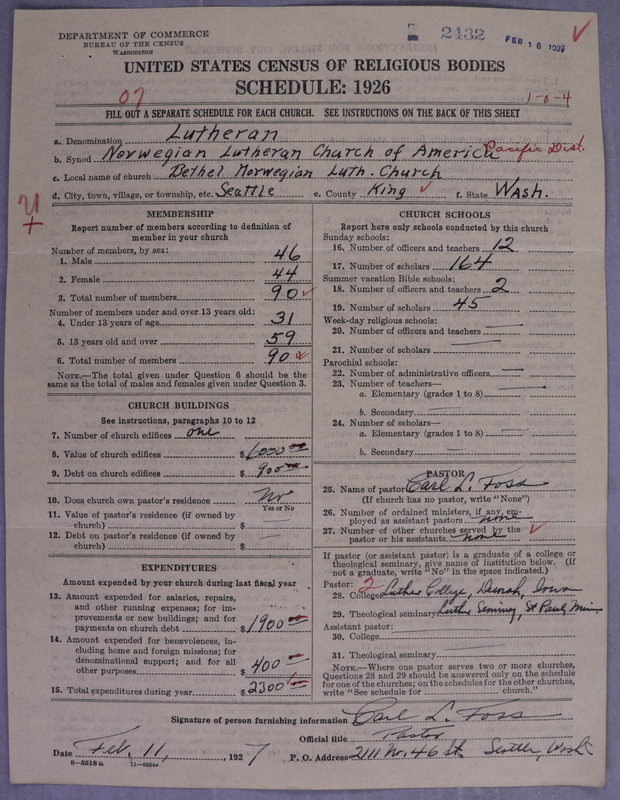 DEPARTMENT OF COMMERCE
BUREAU OF THE CENSUS
WASHINGTON
2432
FEB 16 1927
UNITED STATES CENSUS OF RELIGIOUS BODIES
SCHEDULE: 1926
07
1-0-4
FILL OUT A SEPARATE SCHEDULE FOR EACH CHURCH. SEE INSTRUCTIONS ON THE BACK OF THIS SHEET
a. Denomination Lutheran
b. Synod Norwegian Lutheran Church of America Pacific Dist.
c. Local name of church Bethel Norwegian Luth. Church
d. City, town, village, or township, etc. Seattle e. County King f. State Wash.
MEMBERSHIP
Report number of members according to definition of
member in your church
Number of members, by sex:
1. Male 46
2. Female 44
3. Total number of members 90
Number of members under and over 13 years old:
4. Under 13 years of age 31
5. 13 years old and over 59
6. Total number of members 90
NOTE.—The total given under Question 6 should be
same as the total of males and females given under Question 3.
CHURCH BUILDINGS
See instructions, paragraphs 10 to 12
7. Number of church edifices one
8. Value of church edifices $6000 00
9. Debt on church edifices $900 00
10. Does church own pastor's residence No
Yes or No
11. Value of pastor's residence (if owned by
church) $
12. Debt on pastor's residence (if owned by
church) $
EXPENDITURES
Amount expended by your church during last fiscal year
13. Amount expended for salaries, repairs,
and other running expenses; for im-
provements or new buildings; and for
payments on church debt $1900 00
14. Amount expended for benevolences, in-
cluding home and foreign missions; for
denominational support; and for all
other purposes $400
15. Total expenditures during year $2300
CHURCH SCHOOLS
Report here only schools conducted by this church
Sunday schools:
16. Number of officers and teachers 12
17. Number of scholars 164
Summer vacation Bible schools:
18. Number of officers and teachers 2
19. Number of scholars 45
Week-day religious schools:
20. Number of officers and teachers
21. Number of scholars
Parochial schools:
22. Number of administrative officers
23. Number of teachers—
a. Elementary (grades 1 to 8)
b. Secondary
24. Number of scholars—
a. Elementary (grades 1 to 8)
b. Secondary
PASTOR
25. Name of pastor Carl L. Foss
(If church has no pastor, write "None")
26. Number of ordained ministers, if any, em-
ployed as assistant pastors none
27. Number of other churches served by the
pastor or his assistants none
If pastor (or assistant pastor) is a graduate of a college or
theological seminary, give name of institution below. (If
not a graduate, write "No" in the space indicated.)
Pastor: 2
28. College Luther College, Decorah, Iowa
29. Theological seminary Luther Seminary, St Paul, Minn
Assistant pastor:
30. College
31. Theological seminary
NOTE.—Where one pastor serves two or more churches,
Questions 28 and 29 should be answered only on the schedule
for one of the churches; on the schedules for the other churches,
write "See schedule for church."
Signature of person furnishing information Carl L. Foss
Official title Pastor
Date Feb. 11, 1927 P. O. Address 2111 W. 46 St. Seattle, Wash.
8—5518a 11—9054a